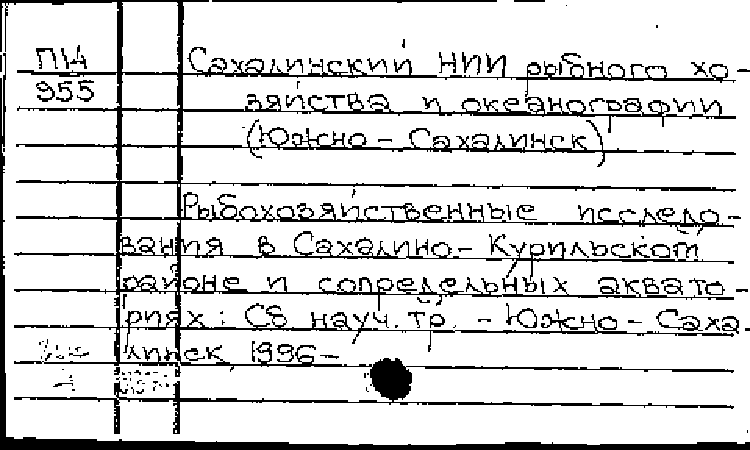 П14
955
Сахалинский НИИ рыбного хо-
зяйства и океанографии
(Южно-Сахалинск)
Рыбохозяйственные исследо-
вания в Сахалино-Курильском
районе и сопредельных аквато-
риях: Сб науч. тр. - Южно-Саха-
линск, 1996-